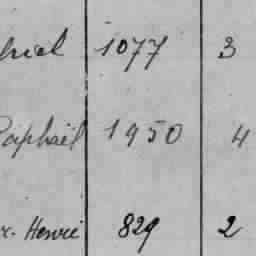 1077 3
Raphaël 1950 4
Henri 829 2